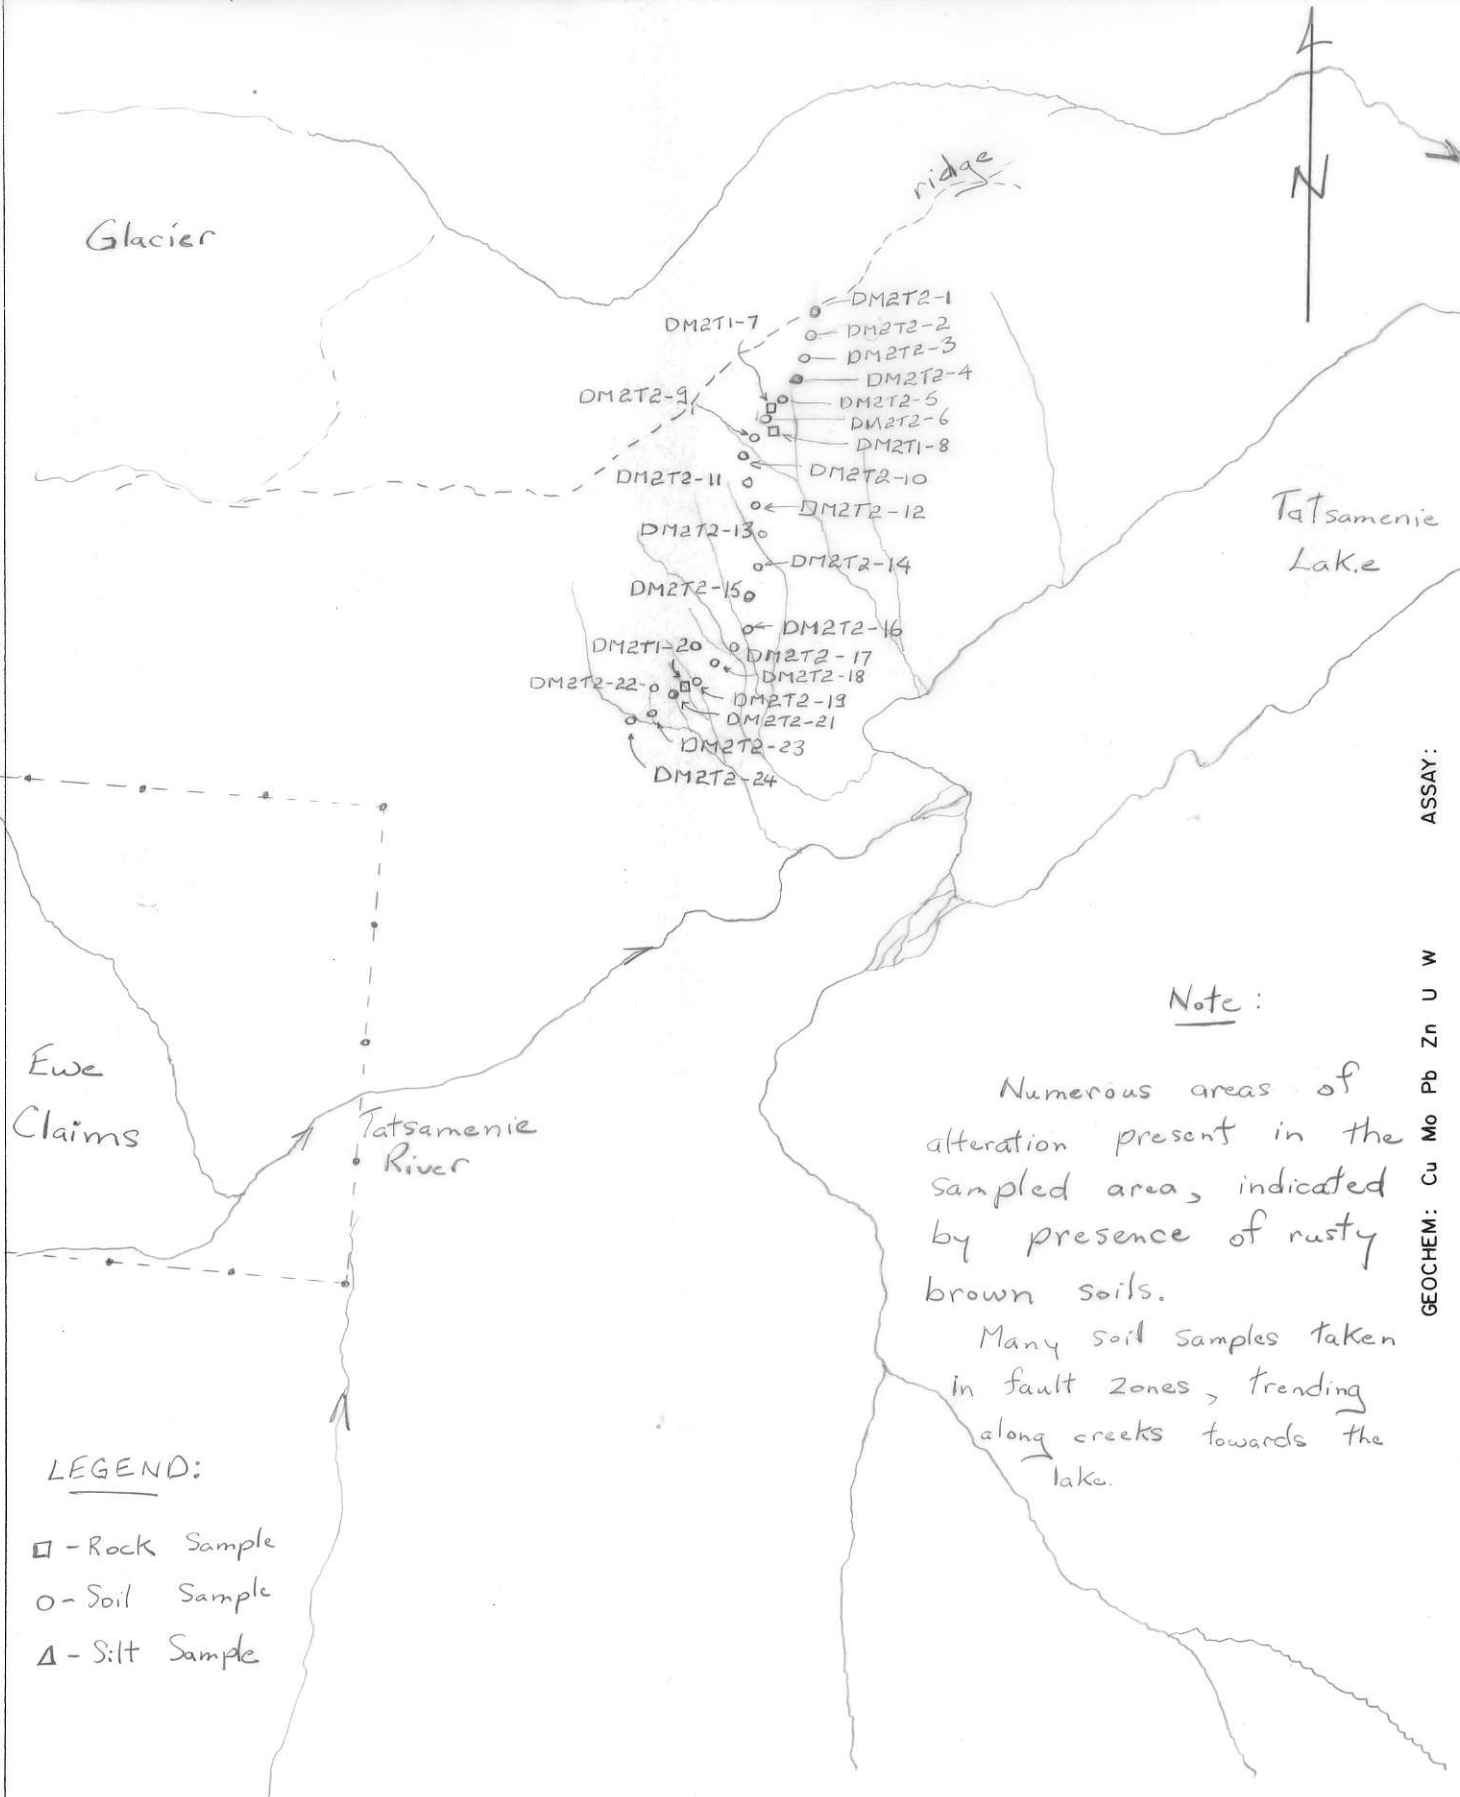 N
ridge
Glacier
DM2T2-1
DM2T1-7
DM2T2-2
DM2T2-3
DM2T2-4
DM2T2-9
DM2T2-5
DM2T2-6
DM2T1-8
DM2T2-10
DM2T2-11
DM2T2-12
DM2T2-13
DM2T2-14
DM2T2-15
DM2T2-16
DM2T1-20
DM2T2-17
DM2T2-18
DM2T2-22
DM2T2-19
DM2T2-21
DM2T2-23
DM2T2-24
Tatsamenie
Lake
Ewe
Claims
Tatsamenie
River
Note:
Numerous areas of
alteration present in the
sampled area, indicated
by presence of rusty
brown soils.
Many soil samples taken
in fault zones, trending
along creeks towards the
lake.
LEGEND:
□ - Rock Sample
○ - Soil Sample
△ - Silt Sample
GEOCHEM: Cu Mo Pb Zn U W ASSAY: